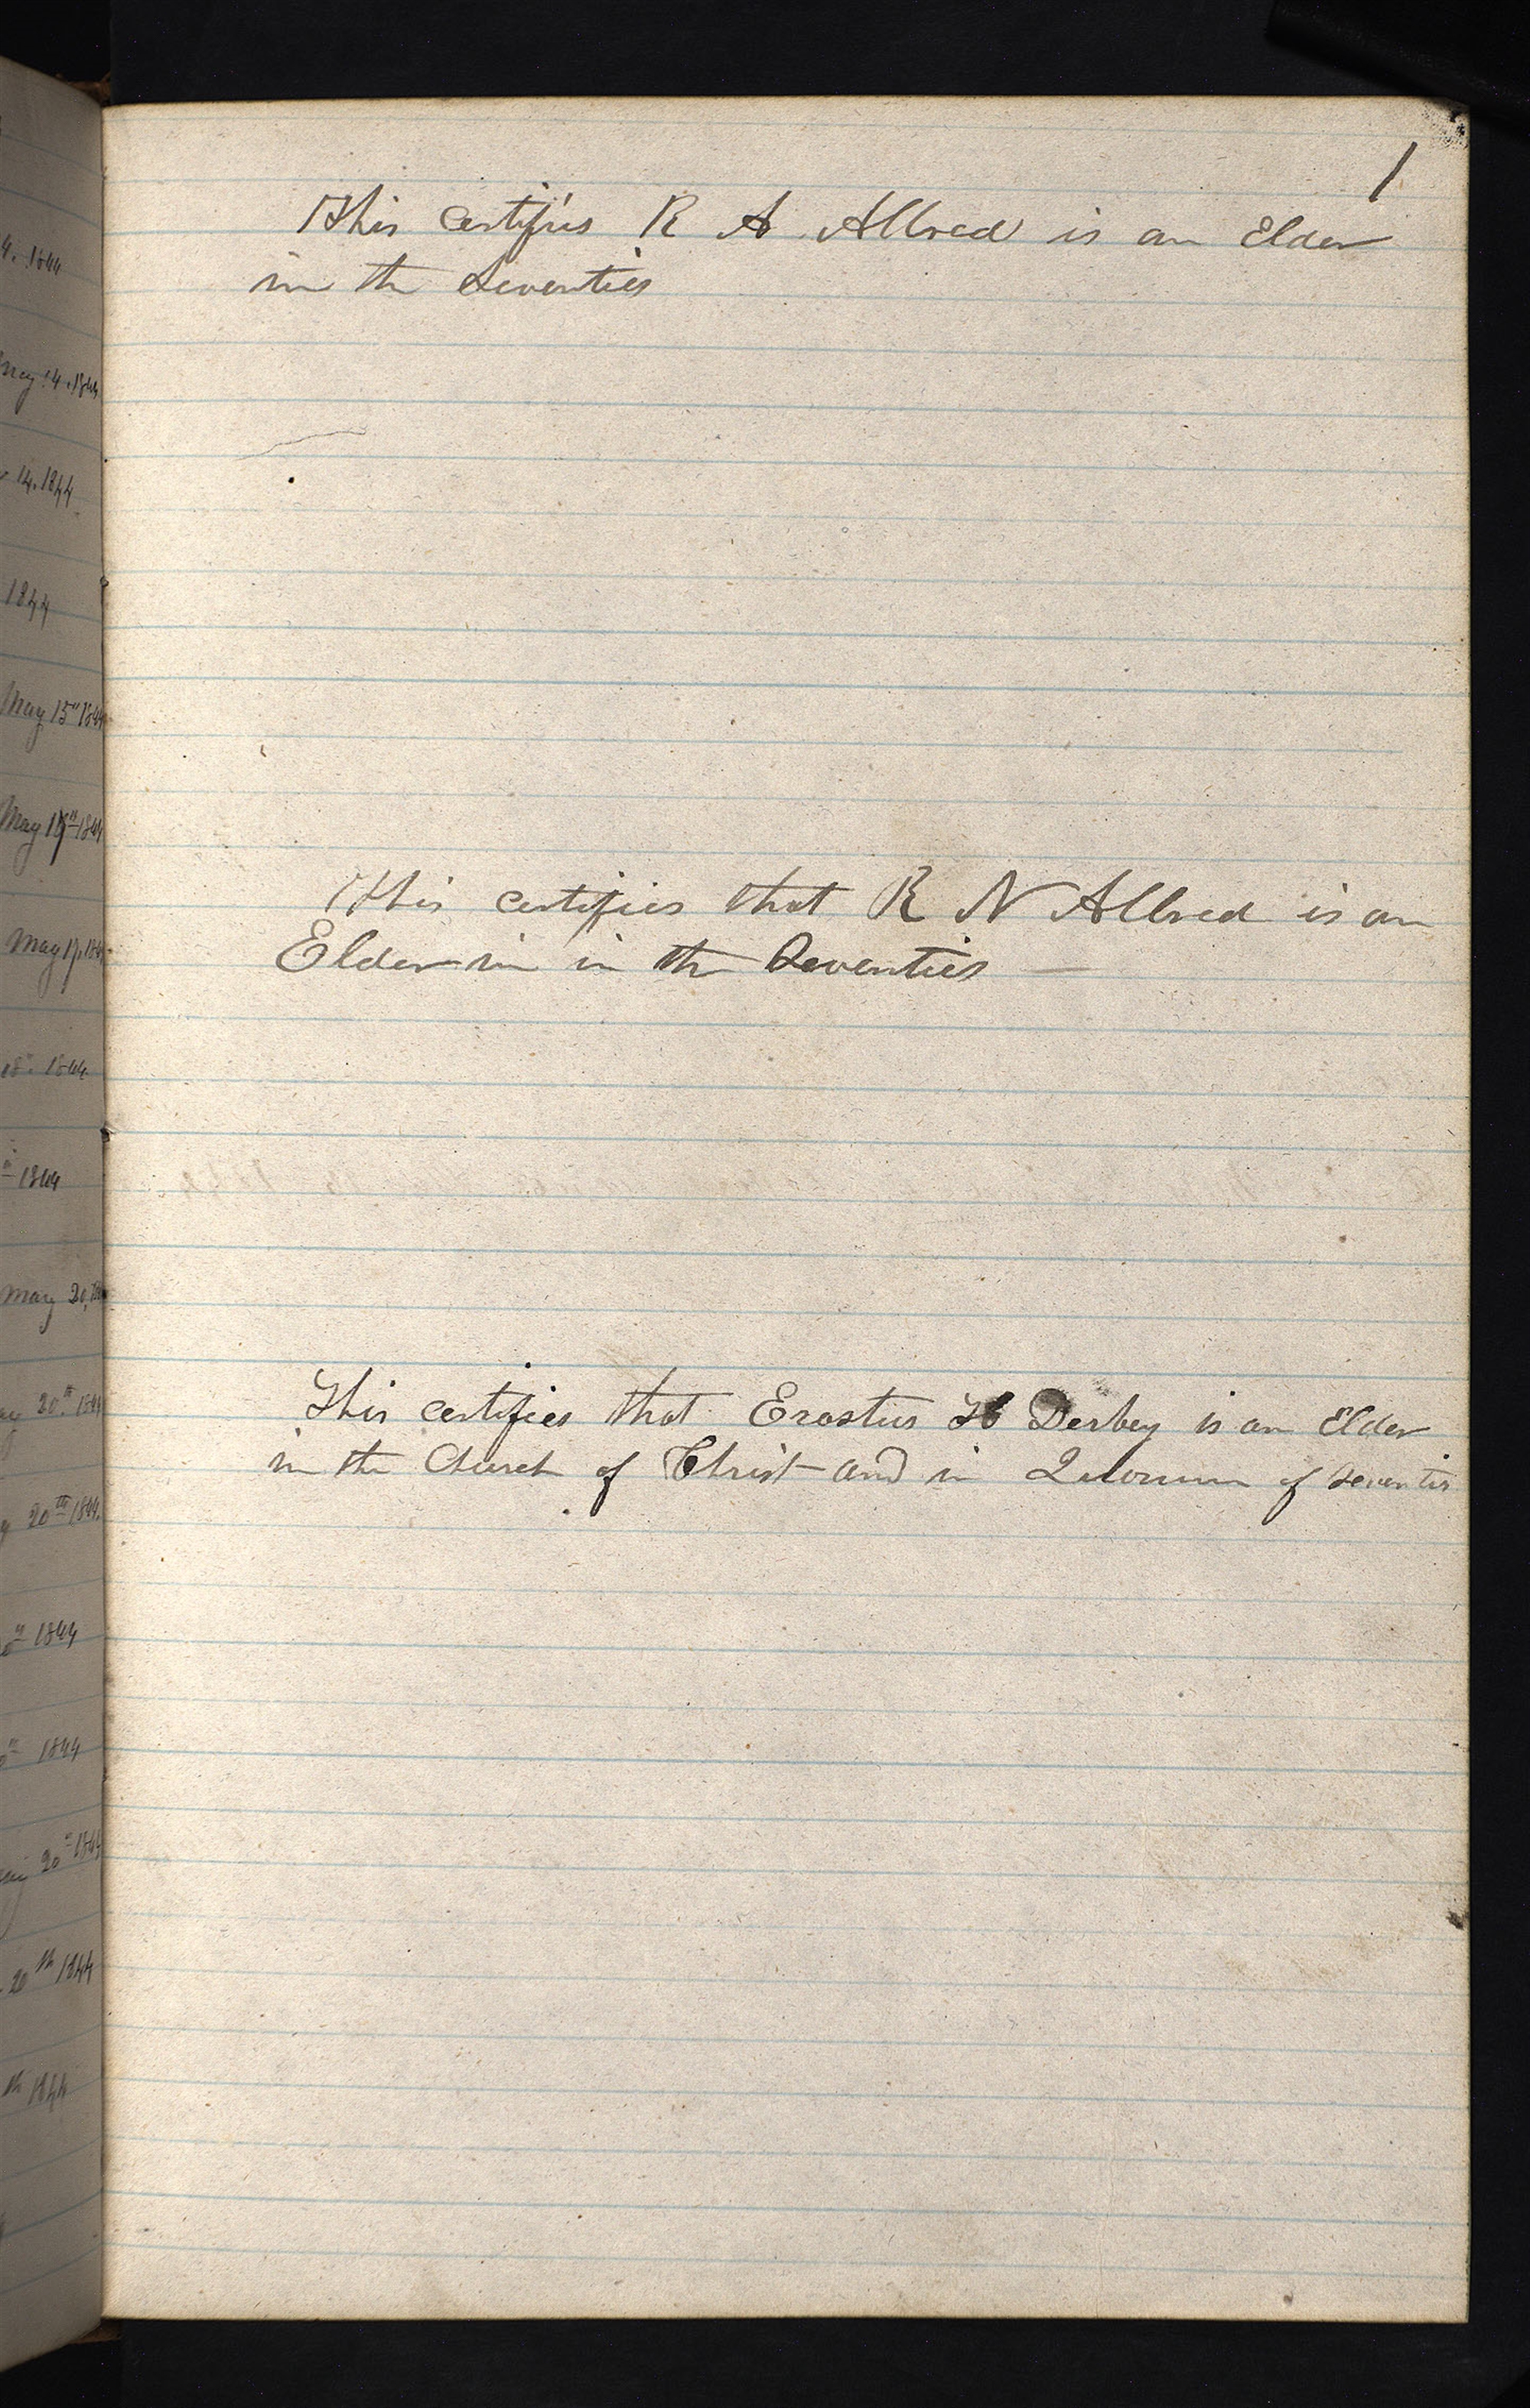 1
This certifies R A Allred is an Elder
in the Seventies
This certifies that R N Allred is an
Elder in in the Seventies —
This certifies that Erastus H Derbey is an Elder
in the Church of Christ and in Quorum of Seventis
4. 1844
May 14. 1844
14. 1844
1844
May 15" 1844
May 1844
May 17. 1844
18". 1844
1844
May 20, 1844
20th 1844
20th 1844.
1844
1844
20" 1844
20th 1844
th 1844